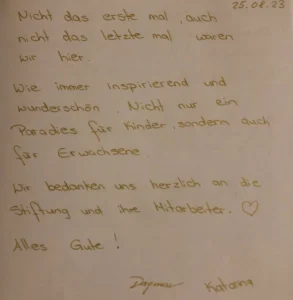 25.08.23
Nicht das erste mal, auch
nicht das letzte mal waren
wir hier.
Wie immer inspirierend und
wunderschön. Nicht nur ein
Paradies für Kinder, sondern auch
für Erwachsene.
Wir bedanken uns herzlich an die
Stiftung und ihre Mitarbeiter. ♡
Alles Gute!
Dagmar Katarina